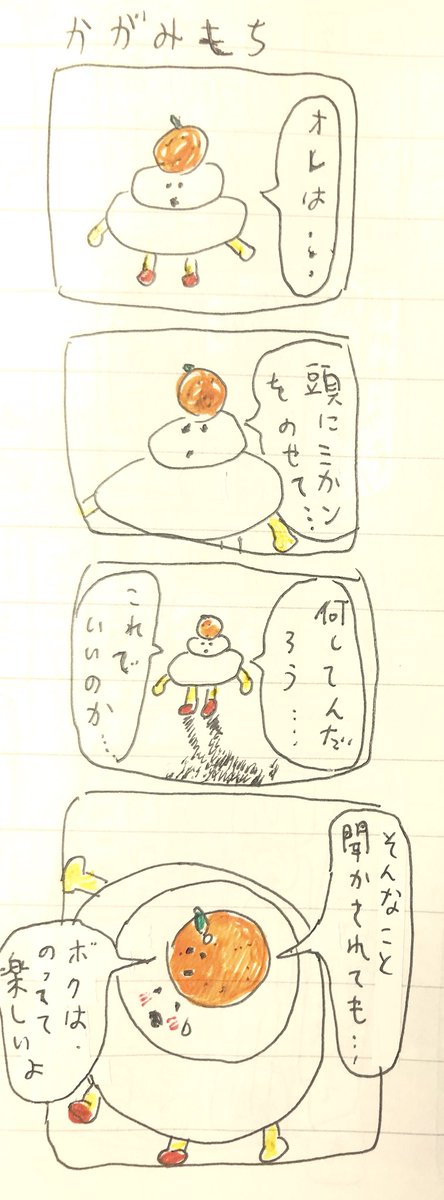 かがみもち
オレは...
頭にミカン
をのせて...
何してんだ
ろう....
これで
いいのか...
そんなこと
聞かされても...
ボクは.
のってて
楽しいよ